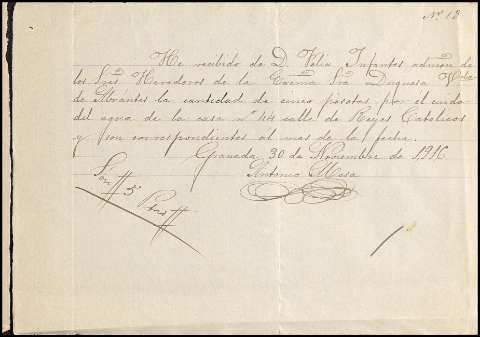 Nº 13
He recibido de D. Felix Infantes admon de
los Sres Herederos de la Excma Sra Duquesa Vda
de Abrántes la cantidad de cinco pesetas por el cuido
del agua de la casa nº 44 calle de Reyes Catolicos
y son correspondientes al mes de la fecha.
Granada 30 de Noviembre de 1916
Antonio Mesa
Son # 5 Ptas #